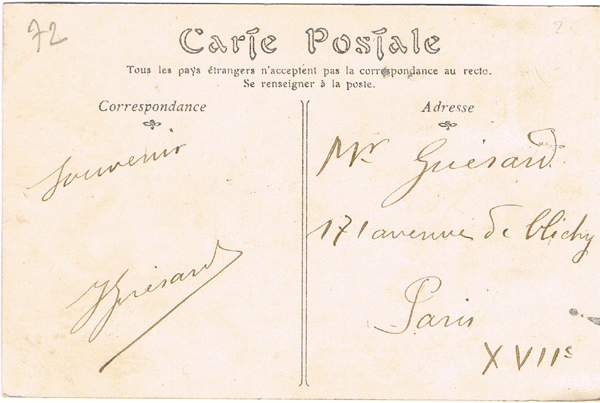 72
Carte Postale
Tous les pays étrangers n'acceptent pas la correspondance au recto.
Se renseigner à la poste.
Correspondance
Adresse
Souvenir
Guérard
Mr Guérard
171 avenue de Clichy
Paris
XVIIe